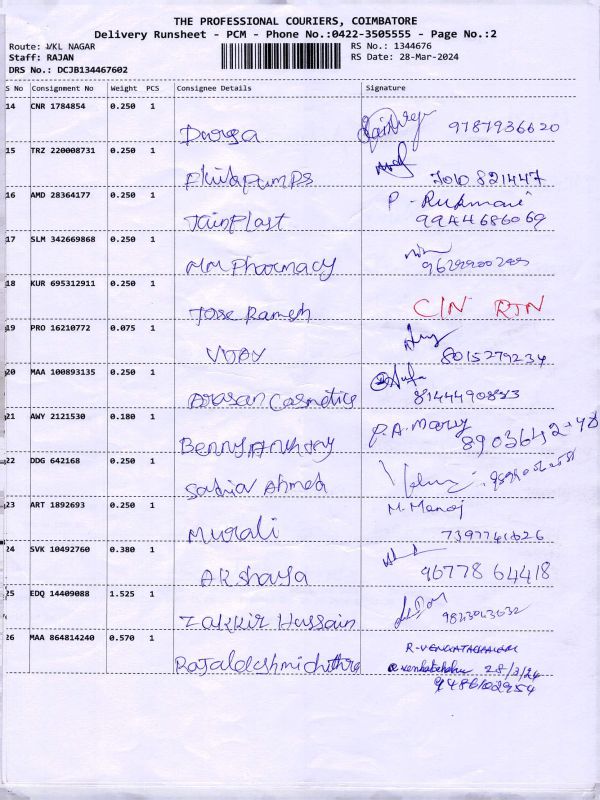 THE PROFESSIONAL COURIERS, COIMBATORE
Delivery Runsheet - PCM - Phone No.:0422-3505555 - Page No.:2
Route: VKL NAGAR
RS No.: 1344676
Staff: RAJAN
RS Date: 28-Mar-2024
DRS No.: DCJB134467602
S No Consignment No Weight PCS Consignee Details Signature
14 CNR 1784854 0.250 1
Durga 9787936620
15 TRZ 220008731 0.250 1
7010 821447
16 AMD 28364177 0.250 1
P. Rukmani
9944686069
17 SLM 342669868 0.250 1
MM Pharmacy
18 KUR 695312911 0.250 1
Jose Ramesh C/N RTN
19 PRO 16210772 0.075 1
VIJAY 8015279234
20 MAA 100893135 0.250 1
Arasan Cosmetics
21 AWY 2121530 0.180 1
P.A. Mary
Benny Anthony
22 DDG 642168 0.250 1
Ahmed
23 ART 1892693 0.250 1
M. Manoj
Murali
24 SVK 10492760 0.380 1
Akshaya 96778 64418
25 EDQ 14409088 1.525 1
Zakkir Hussain
26 MAA 864814240 0.570 1
R-VENGATACHALAM
28/3/24
9486102954